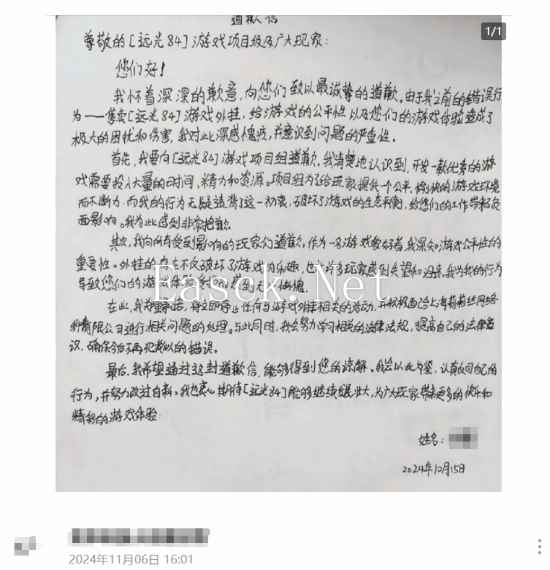 道歉信
1/1
尊敬的[远光84]游戏项目组及广大玩家:
您们好!
我怀着深深的歉意,向您们致以最诚挚的道歉。由于我之前的错误行
为——售卖[远光84]游戏外挂,给游戏的公平性以及您们的游戏体验造成了
极大的困扰和伤害,我对此深感愧疚,我意识到问题的严重性。
首先,我要向[远光84]游戏项目组道歉,我清楚地认识到,开发一款优秀的游
戏需要投入大量的时间,精力和资源。项目组为了给玩家提供一个公平、愉快的游戏环境
而不断努力,而我的行为无疑违背了这一初衷,破坏了游戏的生态平衡,给您们的工作带来负
面影响。我为此感到非常抱歉。
其次,我向所有受到影响的玩家们道歉,作为一名游戏爱好者,我深知游戏公平性的
重要性。外挂的存在不仅破坏了游戏的乐趣,也让许多玩家感到失望和沮丧,我为我的行为
导致您们的游戏体验
Easck.Net
在此,我郑重承诺,将立即停止任何与游戏外挂相关的活动,
有限公司进行相关问题的处理。与此同时,我会努力学习相关的法律法规,提高自己的法律意
识,确保今后不再犯类似的错误。
最后,我希望通过这封道歉信,能够得到您们的谅解。我会以此为鉴,认真反思自己的
行为,并努力改过自新。我也衷心期待[远光84]能够继续壮大,为广大玩家带来更多的快乐和
精彩的游戏体验.
姓名:
2024年12月15日
2024年11月06日 16:01